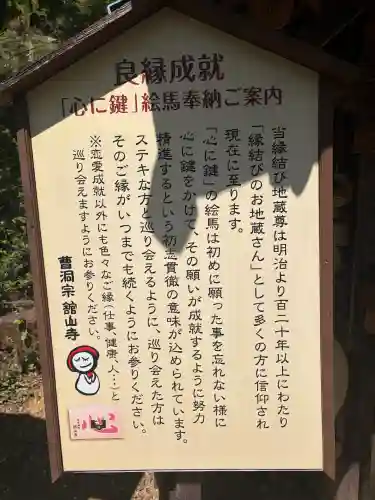 良縁成就
「心に鍵」絵馬奉納ご案内
当縁結び地蔵尊は明治より百二十年以上にわたり
「縁結びのお地蔵さん」として多くの方に信仰され
現在に至ります。
「心に鍵」の絵馬は初めに願った事を忘れない様に
心に鍵をかけて、その願いが成就するように努力
精進するという初志貫徹の意味が込められています。
ステキな方と巡り会えるように、巡り会えた方は
そのご縁がいつまでも続くようにお参りください。
※恋愛成就以外にも色々なご縁(仕事、健康、人、…)と
巡り会えますようにお参りください。
曹洞宗 舘山寺